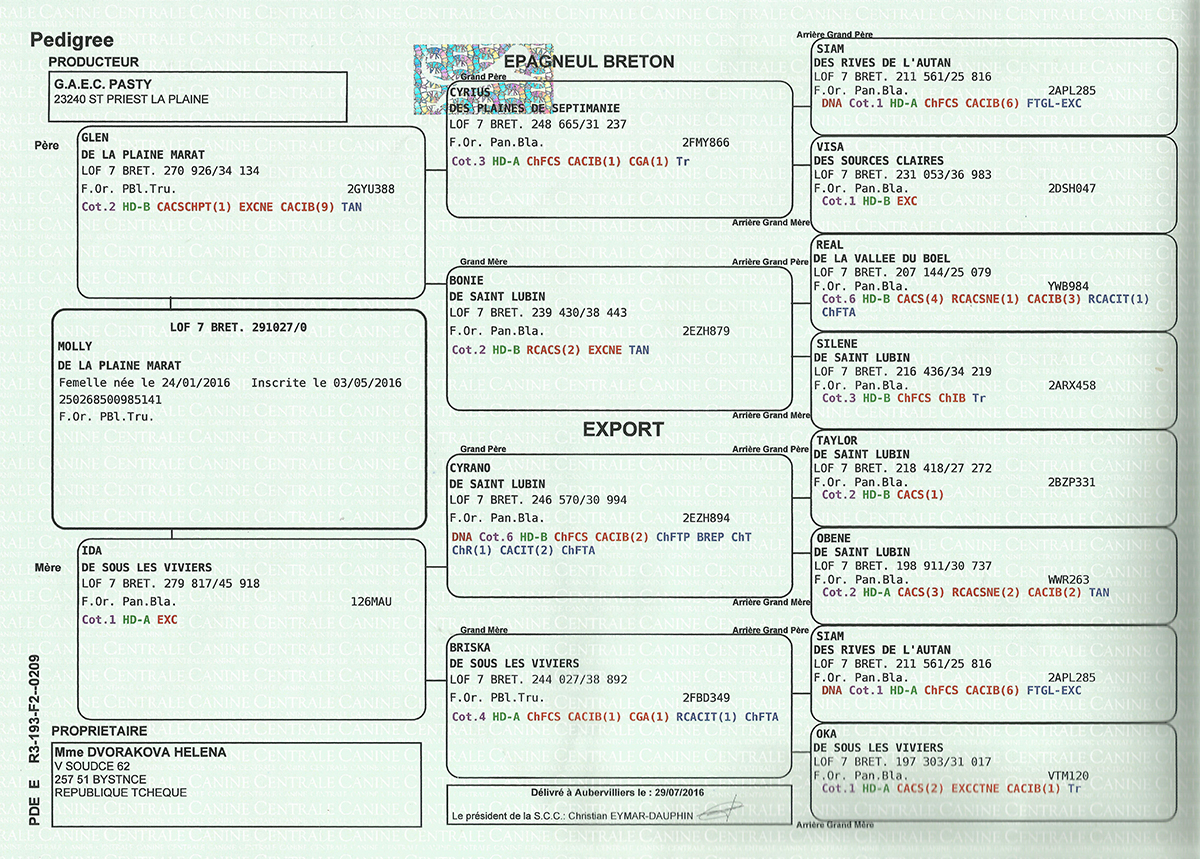 Pedigree
PRODUCTEUR
G.A.E.C. PASTY
23240 ST PRIEST LA PLAINE
EPAGNEUL BRETON
Père
GLEN
DE LA PLAINE MARAT
LOF 7 BRET. 270 926/34 134
F.Or. PBl.Tru. 2GYU388
Cot.2 HD-B CACSCHPT(1) EXCNE CACIB(9) TAN
LOF 7 BRET. 291027/0
MOLLY
DE LA PLAINE MARAT
Femelle née le 24/01/2016 Inscrite le 03/05/2016
250268500985141
F.Or. PBl.Tru.
Mère
IDA
DE SOUS LES VIVIERS
LOF 7 BRET. 279 817/45 918
F.Or. Pan.Bla. 126MAU
Cot.1 HD-A EXC
PROPRIETAIRE
Mme DVORAKOVA HELENA
V SOUDCE 62
257 51 BYSTNCE
REPUBLIQUE TCHEQUE
PDE E R3-193-F2--0209
Grand Père
CYRIUS
DES PLAINES DE SEPTIMANIE
LOF 7 BRET. 248 665/31 237
F.Or. Pan.Bla. 2FMY866
Cot.3 HD-A ChFCS CACIB(1) CGA(1) Tr
Grand Mère
BONIE
DE SAINT LUBIN
LOF 7 BRET. 239 430/38 443
F.Or. Pan.Bla. 2EZH879
Cot.2 HD-B RCACS(2) EXCNE TAN
EXPORT
Grand Père
CYRANO
DE SAINT LUBIN
LOF 7 BRET. 246 570/30 994
F.Or. Pan.Bla. 2EZH894
DNA Cot.6 HD-B ChFCS CACIB(2) ChFTP BREP ChT
ChR(1) CACIT(2) ChFTA
Grand Mère
BRISKA
DE SOUS LES VIVIERS
LOF 7 BRET. 244 027/38 892
F.Or. PBl.Tru. 2FBD349
Cot.4 HD-A ChFCS CACIB(1) CGA(1) RCACIT(1) ChFTA
Délivré à Aubervilliers le : 29/07/2016
Le président de la S.C.C.: Christian EYMAR-DAUPHIN
Arrière Grand Père
SIAM
DES RIVES DE L'AUTAN
LOF 7 BRET. 211 561/25 816
F.Or. Pan.Bla. 2APL285
DNA Cot.1 HD-A ChFCS CACIB(6) FTGL-EXC
VISA
DES SOURCES CLAIRES
LOF 7 BRET. 231 053/36 983
F.Or. Pan.Bla. 2DSH047
Cot.1 HD-B EXC
Arrière Grand Mère
Arrière Grand Père
REAL
DE LA VALLEE DU BOEL
LOF 7 BRET. 207 144/25 079
F.Or. Pan.Bla. YWB984
Cot.6 HD-B CACS(4) RCACSNE(1) CACIB(3) RCACIT(1)
ChFTA
SILENE
DE SAINT LUBIN
LOF 7 BRET. 216 436/34 219
F.Or. Pan.Bla. 2ARX458
Cot.3 HD-B ChFCS ChIB Tr
Arrière Grand Mère
Arrière Grand Père
TAYLOR
DE SAINT LUBIN
LOF 7 BRET. 218 418/27 272
F.Or. Pan.Bla. 2BZP331
Cot.2 HD-B CACS(1)
OBENE
DE SAINT LUBIN
LOF 7 BRET. 198 911/30 737
F.Or. Pan.Bla. WWR263
Cot.2 HD-A CACS(3) RCACSNE(2) CACIB(2) TAN
Arrière Grand Mère
Arrière Grand Père
SIAM
DES RIVES DE L'AUTAN
LOF 7 BRET. 211 561/25 816
F.Or. Pan.Bla. 2APL285
DNA Cot.1 HD-A ChFCS CACIB(6) FTGL-EXC
OKA
DE SOUS LES VIVIERS
LOF 7 BRET. 197 303/31 017
F.Or. Pan.Bla. VTM120
Cot.1 HD-A CACS(2) EXCCTNE CACIB(1) Tr
Arrière Grand Mère